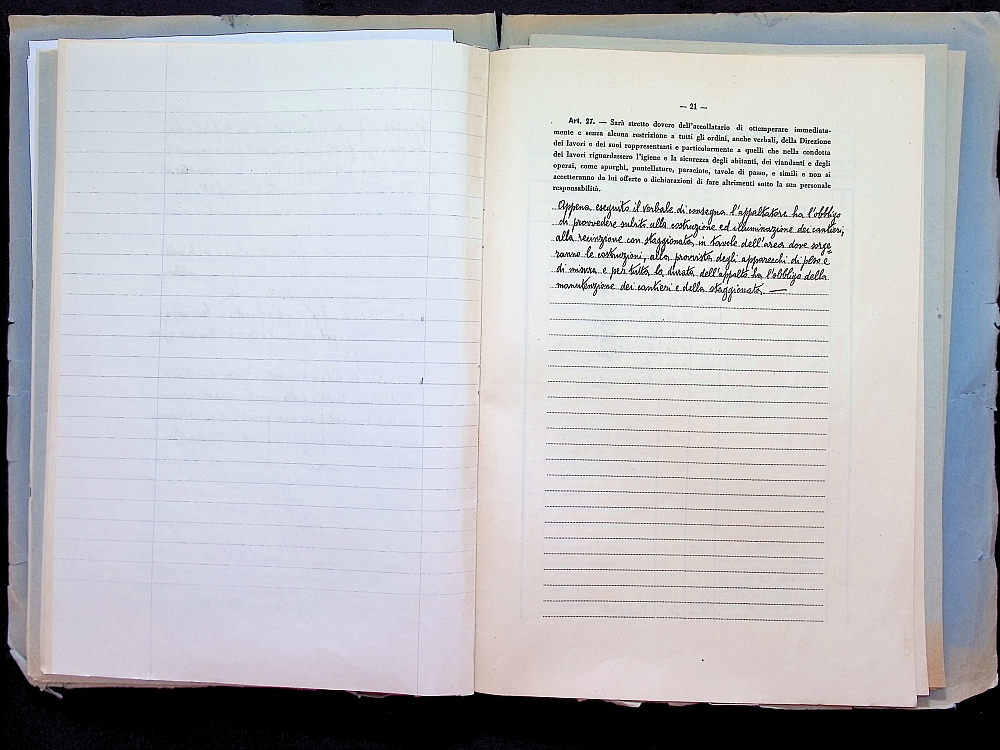 — 21 —
Art. 27. — Sarà stretto dovere dell'accollatario di ottemperare immediata-
mente e senza alcuna restrizione a tutti gli ordini, anche verbali, della Direzione
dei lavori e dei suoi rappresentanti e particolarmente a quelli che nella condotta
dei lavori riguardassero l'igiene e la sicurezza degli abitanti, dei viandanti e degli
operai, come spurghi, puntellature, paracinte, tavole di passo, e simili e non si
accetteranno da lui offerte o dichiarazioni di fare altrimenti sotto la sua personale
responsabilità.
Appena eseguito il verbale di consegna l'appaltatore ha l'obbligo
di provvedere subito alla costruzione ed illuminazione dei cantieri,
alla recinzione con staggionata in tavole dell'area dove sorge=
ranno le costruzioni, alla provvista degli apparecchi di peso e
di misura e per tutta la durata dell'appalto ha l'obbligo della
manutenzione dei cantieri e della staggionata. —